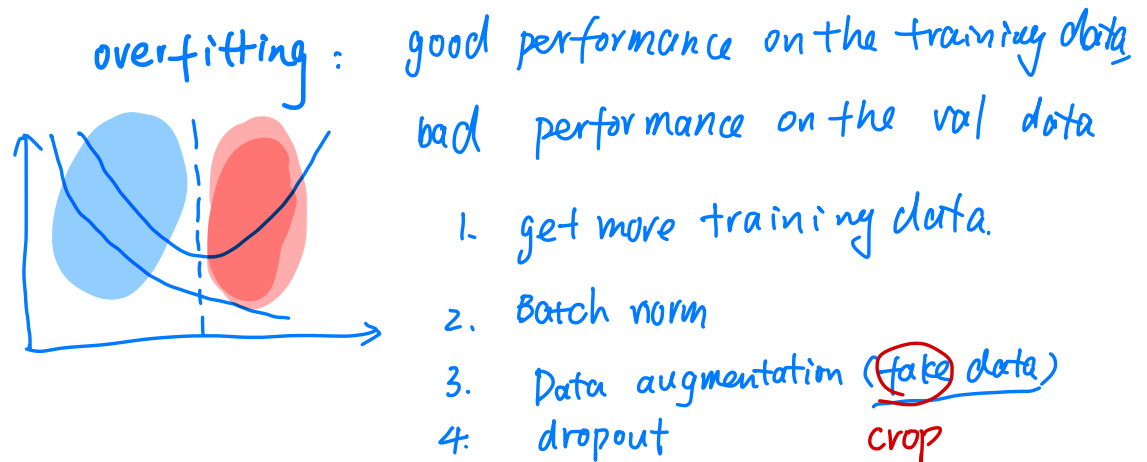 overfitting : good performance on the training data
bad performance on the val data
1. get more training data.
2. Batch norm
3. Data augmentation (fake data)
4. dropout
crop